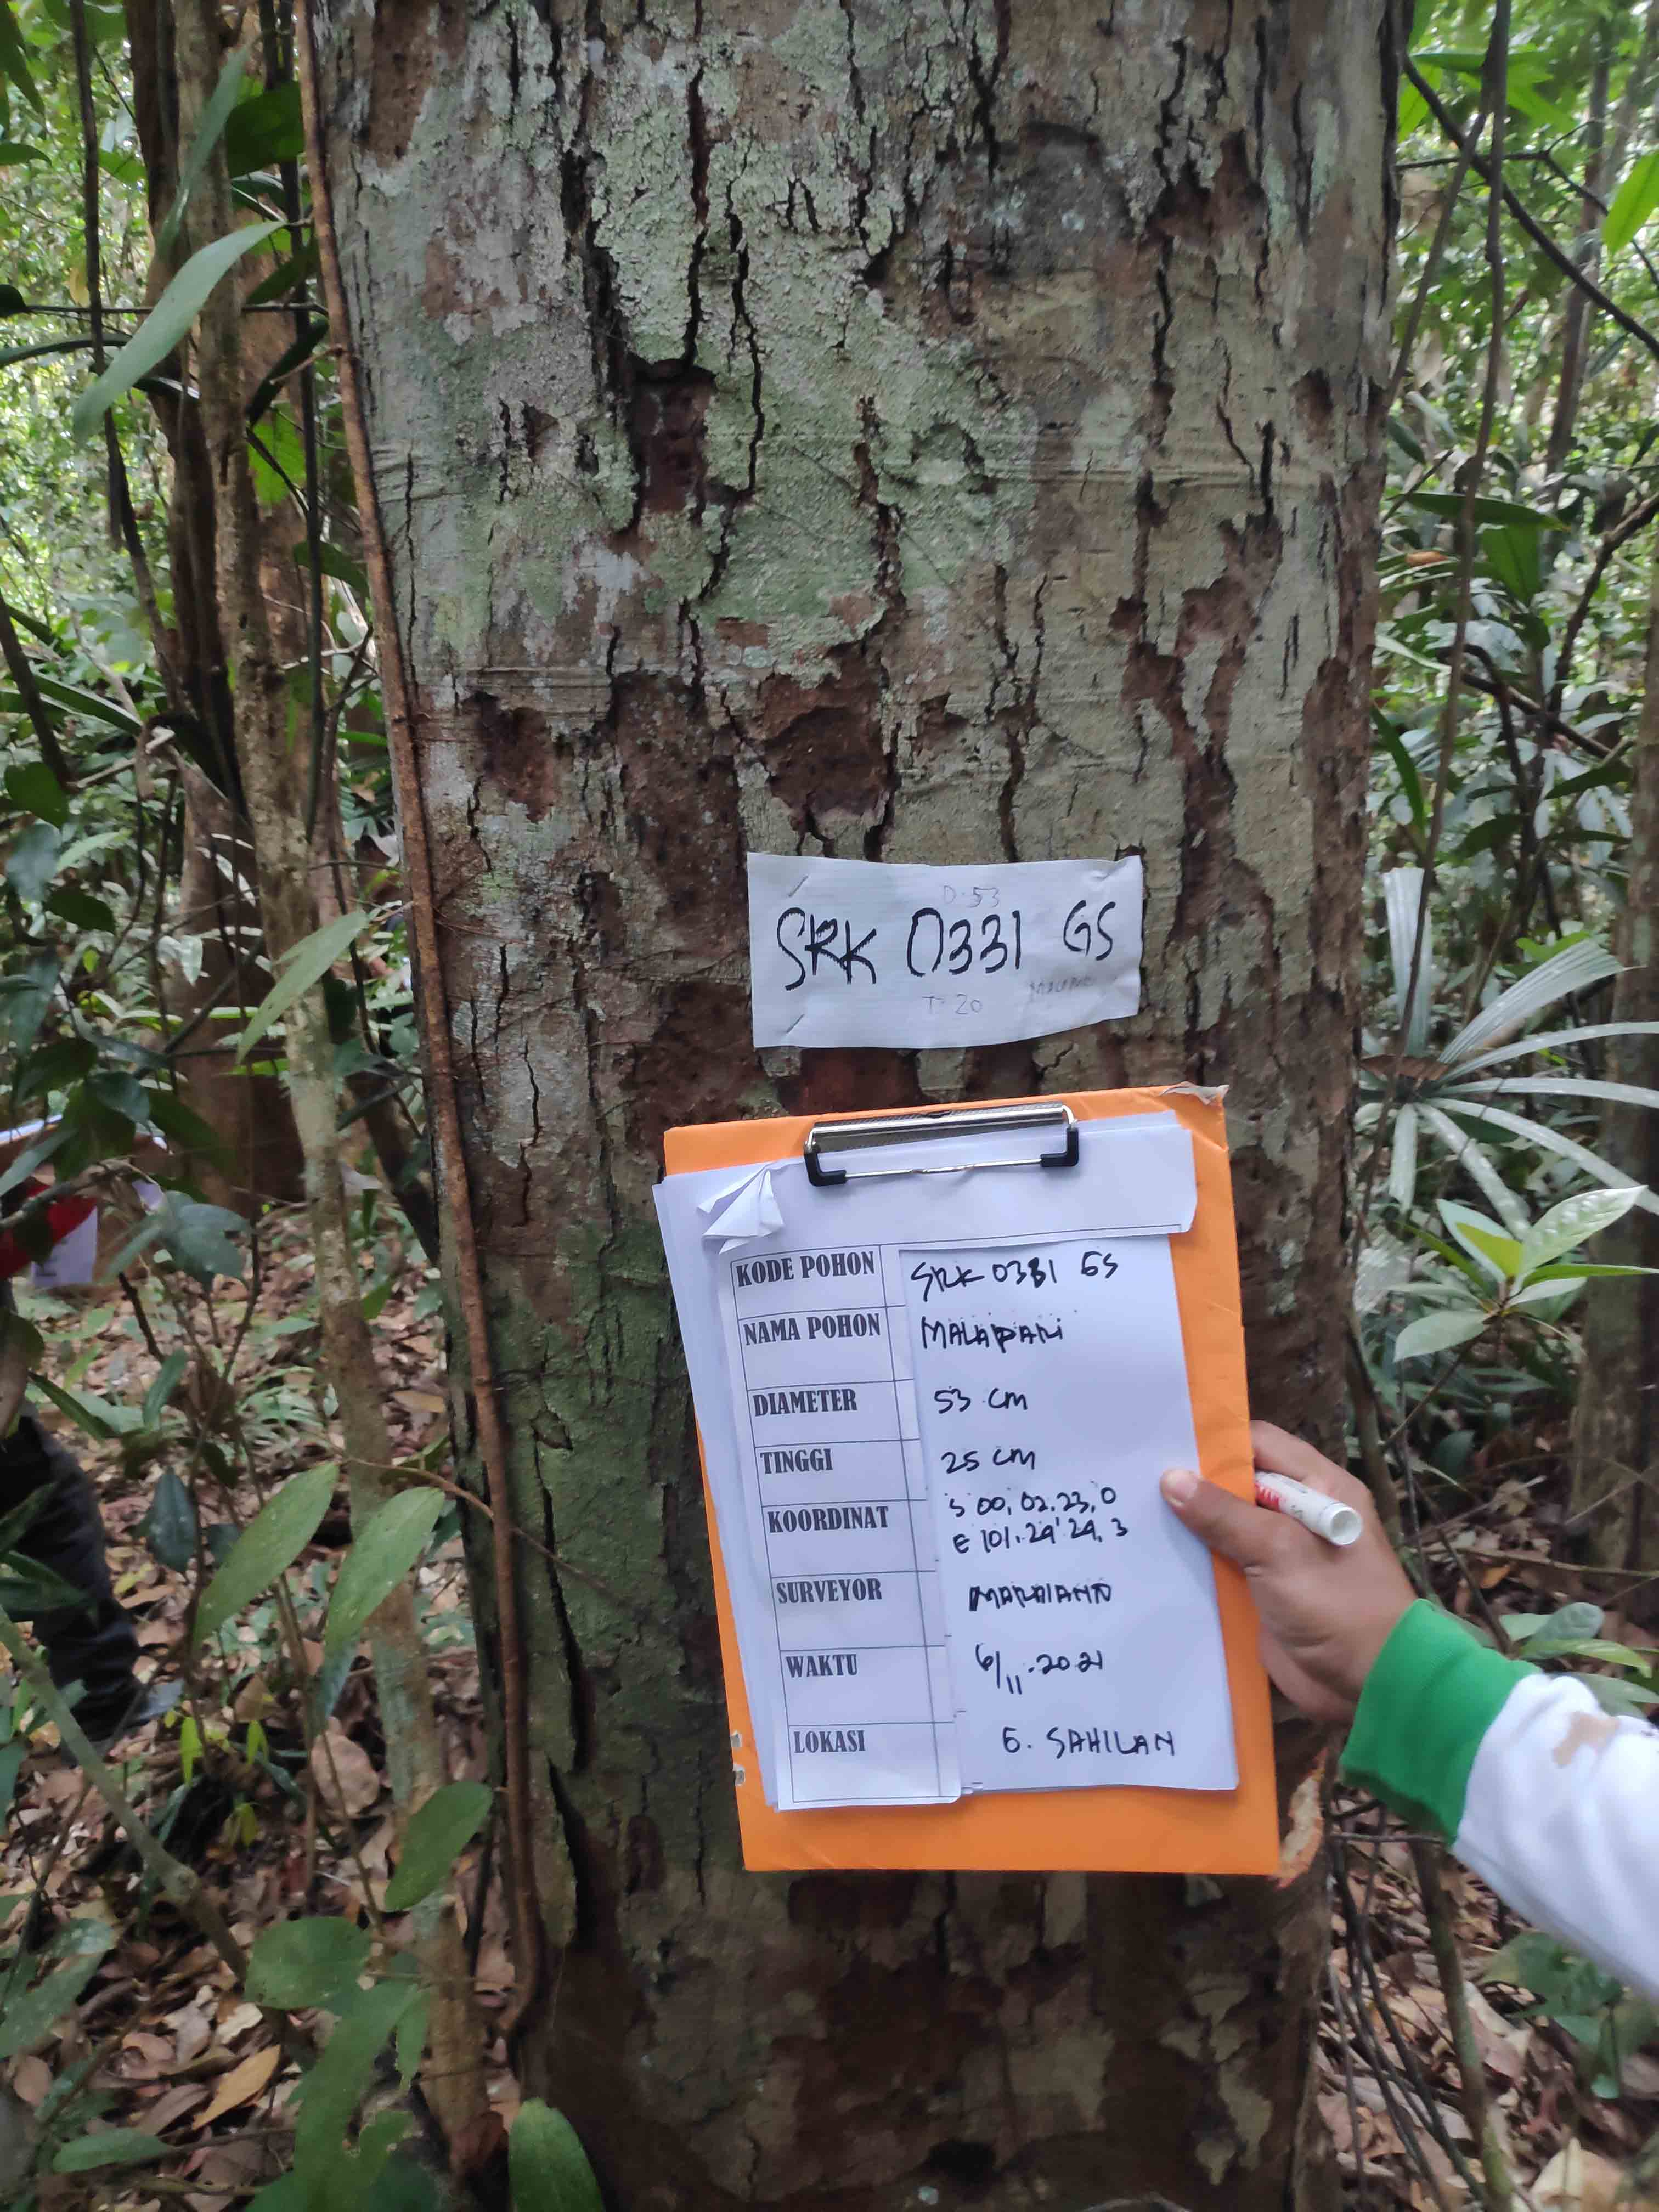 D. 53
SRK 0331 GS
T 20
KODE POHON SRK 0331 GS
NAMA POHON MALAPARI
DIAMETER 53 cm
TINGGI 25 cm
KOORDINAT S 00, 02. 23, 0
E 101. 29' 29, 3
SURVEYOR
WAKTU 6/11.2021
LOKASI G. SAHILAN